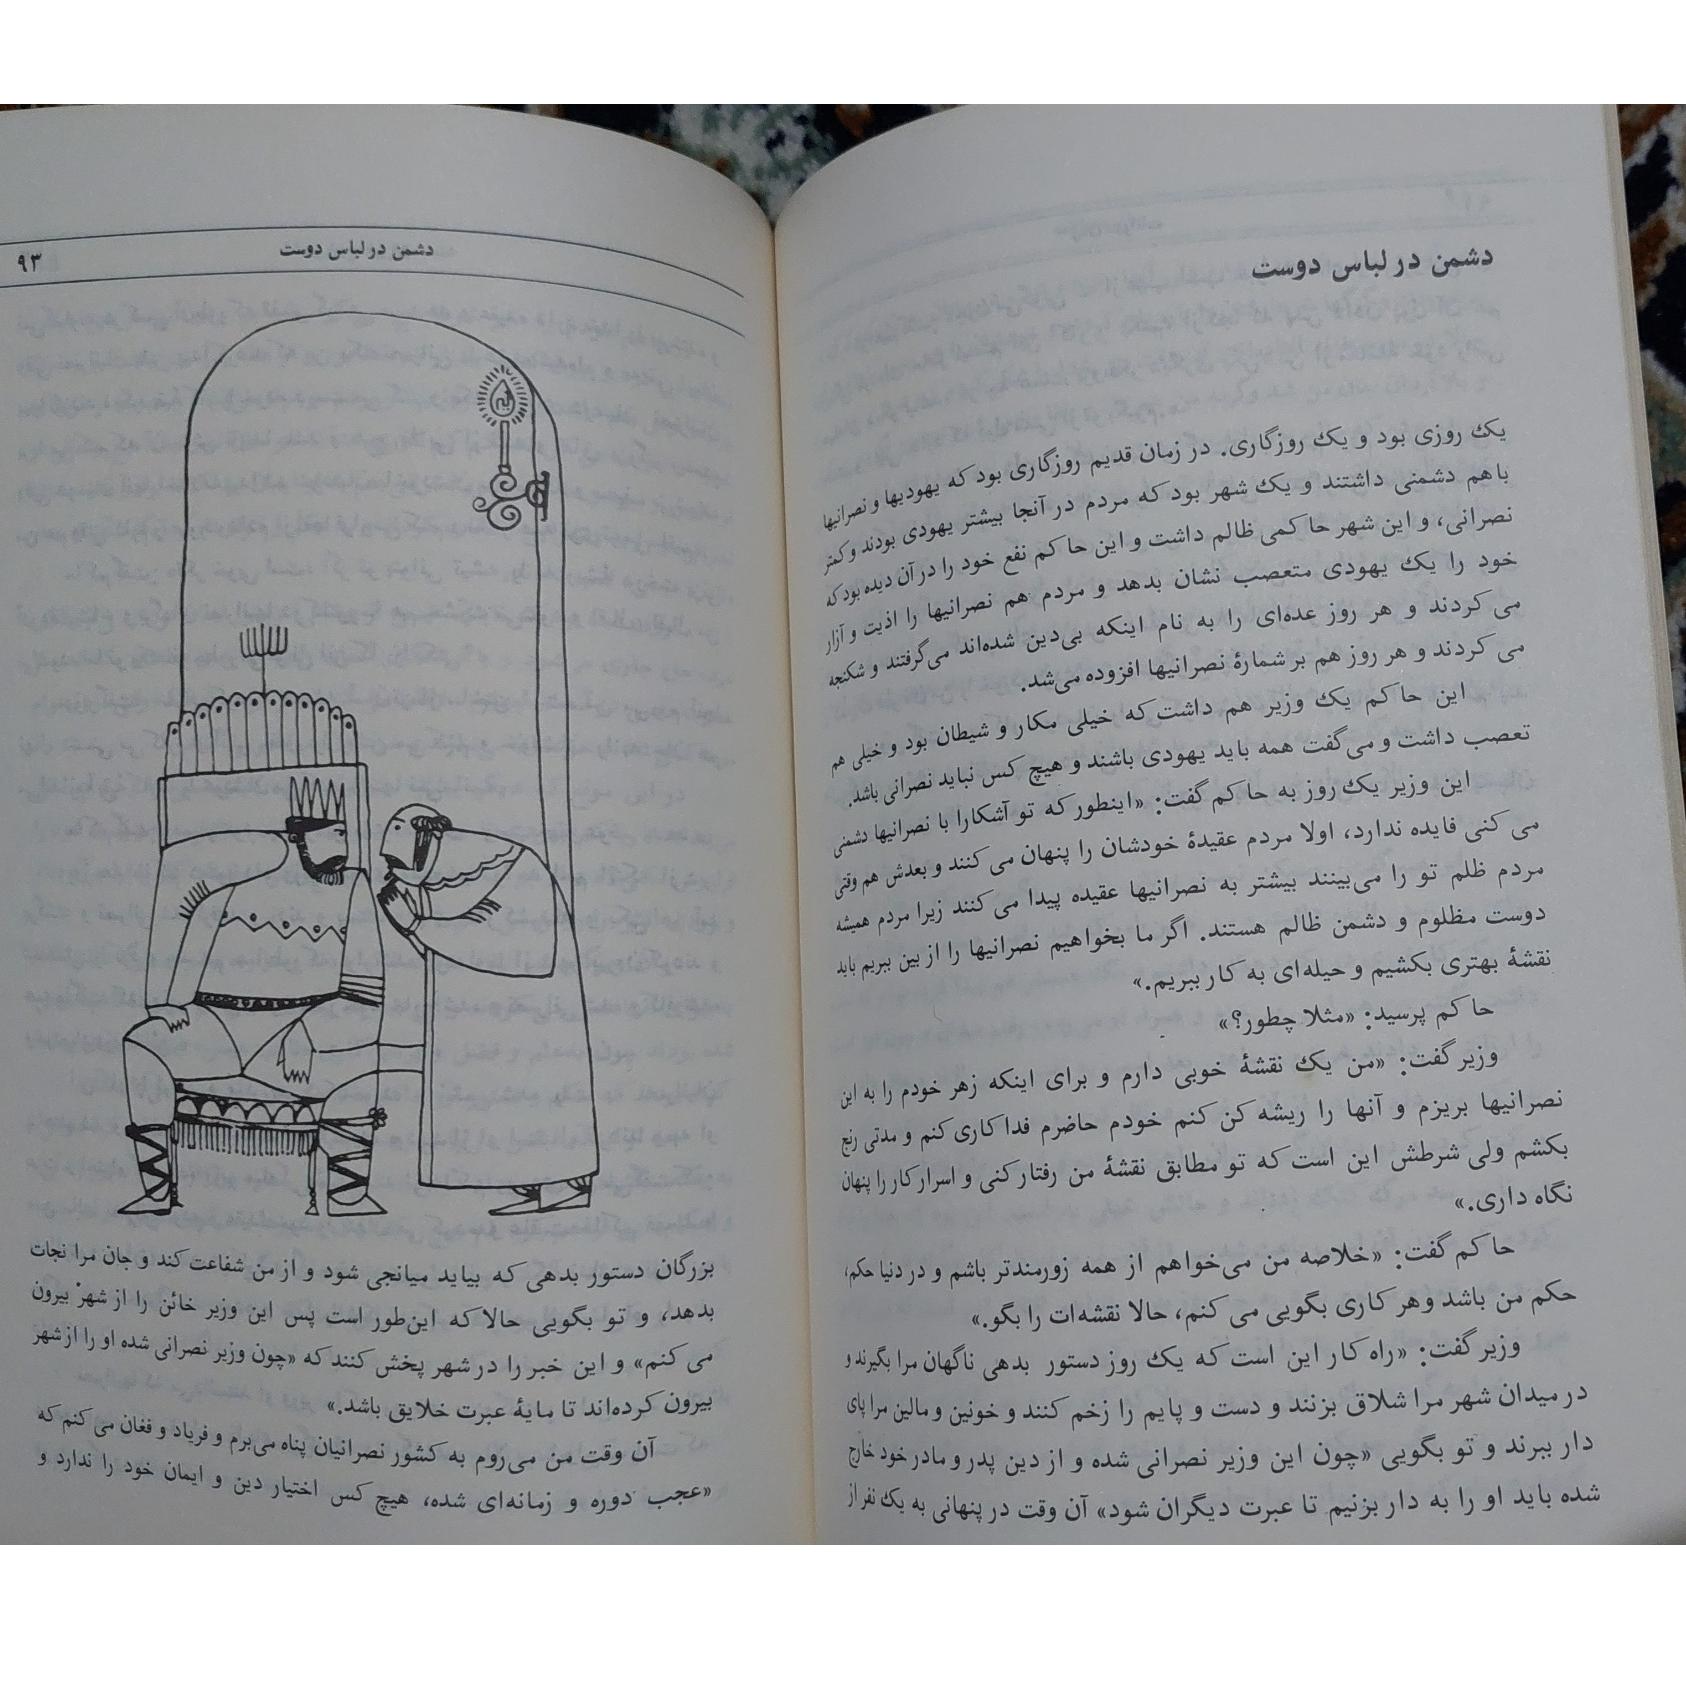 دشمن در لباس دوست
یک روزی بود و یک روزگاری. در زمان قدیم روزگاری بود که یهودیها و نصرانیها
باهم دشمنی داشتند و یک شهر بود که مردم در آنجا بیشتر یهودی بودند و کمتر
نصرانی، و این شهر حاکمی ظالم داشت و این حاکم نفع خود را در آن دیده بود که
خود را یک یهودی متعصب نشان بدهد و مردم هم نصرانیها را اذیت و آزار
می کردند و هر روز عده‌ای را به نام اینکه بی‌دین شده‌اند می‌گرفتند و شکنجه
می کردند و هر روز هم بر شمارهٔ نصرانیها افزوده می‌شد.
این حاکم یک وزیر هم داشت که خیلی مکار و شیطان بود و خیلی هم
تعصب داشت و می‌گفت همه باید یهودی باشند و هیچ کس نباید نصرانی باشد.
این وزیر یک روز به حاکم گفت: «اینطور که تو آشکارا با نصرانیها دشمنی
می کنی فایده ندارد، اولا مردم عقیدهٔ خودشان را پنهان می کنند و بعدش هم وقتی
مردم ظلم تو را می‌بینند بیشتر به نصرانیها عقیده پیدا می کنند زیرا مردم همیشه
دوست مظلوم و دشمن ظالم هستند. اگر ما بخواهیم نصرانیها را از بین ببریم باید
نقشهٔ بهتری بکشیم و حیله‌ای به کار ببریم.»
حاکم پرسید: «مثلا چطور؟»
وزیر گفت: «من یک نقشهٔ خوبی دارم و برای اینکه زهر خودم را به این
نصرانیها بریزم و آنها را ریشه کن کنم خودم حاضرم فداکاری کنم و مدتی رنج
بکشم ولی شرطش این است که تو مطابق نقشهٔ من رفتار کنی و اسرار کار را پنهان
نگاه داری.»
حاکم گفت: «خلاصه من می‌خواهم از همه زورمندتر باشم و در دنیا حکم،
حکم من باشد و هر کاری بگویی می کنم، حالا نقشه‌ات را بگو.»
وزیر گفت: «راه کار این است که یک روز دستور بدهی ناگهان مرا بگیرند و
در میدان شهر مرا شلاق بزنند و دست و پایم را زخم کنند و خونین و مالین مرا پای
دار ببرند و تو بگویی «چون این وزیر نصرانی شده و از دین پدر و مادر خود خارج
شده باید او را به دار بزنیم تا عبرت دیگران شود» آن وقت در پنهانی به یک نفر از
دشمن در لباس دوست
۹۳
بزرگان دستور بدهی که بیاید میانجی شود و از من شفاعت کند و جان مرا نجات
بدهد، و تو بگویی حالا که این‌طور است پس این وزیر خائن را از شهرْ بیرون
می کنم» و این خبر را در شهر پخش کنند که «چون وزیر نصرانی شده او را از شهر
بیرون کرده‌اند تا مایهٔ عبرت خلایق باشد.»
آن وقت من می‌روم به کشور نصرانیان پناه می‌برم و فریاد و فغان می کنم که
«عجب دوره و زمانه‌ای شده، هیچ کس اختیار دین و ایمان خود را ندارد و